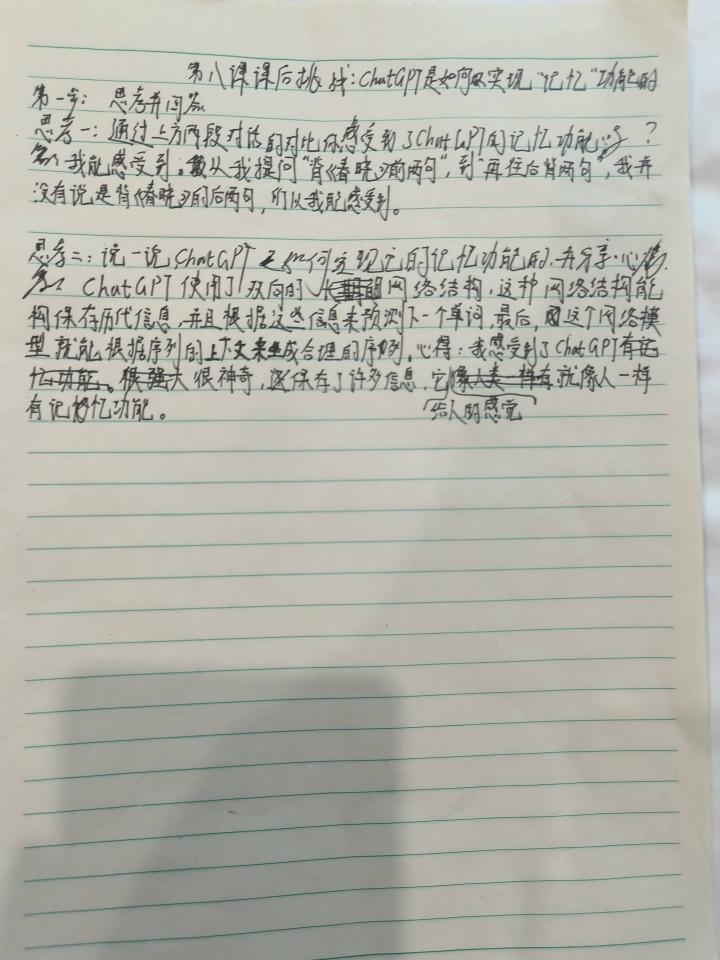 第八课课后挑战：ChatGPT是如何实现“记忆”功能的
第一步：思考并回答
思考一：通过上方两段对话的对比你感受到了ChatGPT的记忆功能吗？
答：我能感受到。从我提问“背《春晓》前两句”，到“再往后背两句”，我并
没有说是背《春晓》的后两句，所以我能感受到。
思考二：说一说ChatGPT是如何实现它的记忆功能的.并分享心得.
答：ChatGPT使用了双向的网络结构，这种网络结构能
构保存历代信息，并且根据这些信息来预测下一个单词，最后，这个网络模
型就能根据序列的上下文来生成合理的序列。心得：我感受到了ChatGPT
很神奇，保存了许多信息，它给人的感觉就像人一样
有记忆功能。